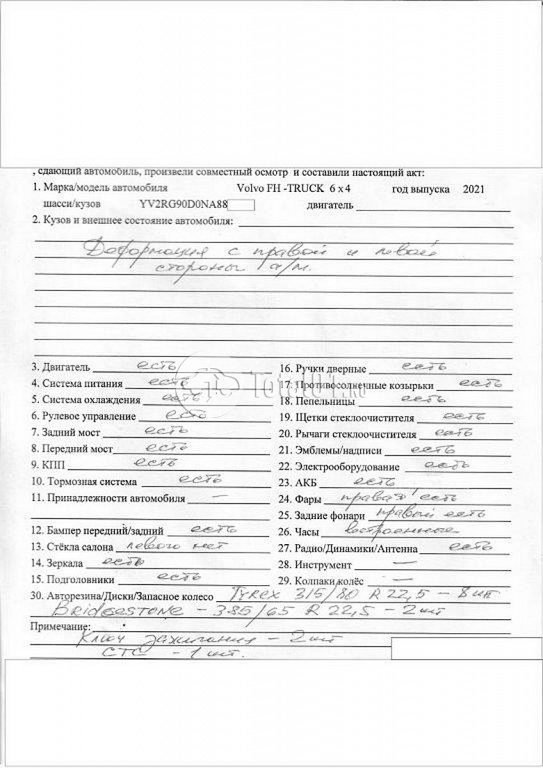 , сдающий автомобиль, произвели совместный осмотр и составили настоящий акт:
1. Марка/модель автомобиля Volvo FH -TRUCK 6 x 4 год выпуска 2021
шасси/кузов YV2RG90D0NA88 двигатель
2. Кузов и внешнее состояние автомобиля:
Деформация с правой и левой
стороны а/м.
3. Двигатель есть 16. Ручки дверные есть
4. Система питания есть 17. Противосолнечные козырьки есть
5. Система охлаждения есть 18. Пепельницы есть
6. Рулевое управление есть 19. Щетки стеклоочистителя есть
7. Задний мост есть 20. Рычаги стеклоочистителя есть
8. Передний мост есть 21. Эмблемы/надписи есть
9. КПП есть 22. Электрооборудование есть
10. Тормозная система есть 23. АКБ есть
11. Принадлежности автомобиля — 24. Фары правая есть
25. Задние фонари правый есть
12. Бампер передний/задний есть 26. Часы встроенные
13. Стёкла салона левого нет 27. Радио/Динамики/Антенна есть
14. Зеркала есть 28. Инструмент —
15. Подголовники есть 29. Колпаки колёс —
30. Авторезина/Диски/Запасное колесо Tyrex 315/80 R 22,5 – 8 шт
BRIDGESTONE – 385/65 R 22,5 – 2 шт
Примечание:
Ключ зажигания – 2 шт
СТС – 1 шт.